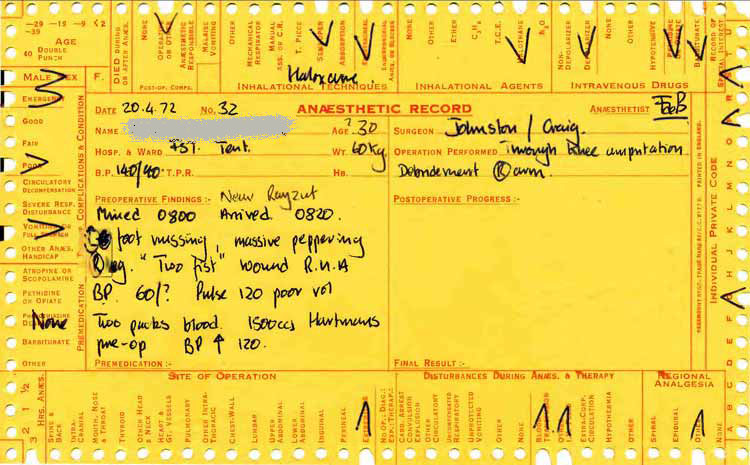 -29 -19 -9 <2
-39
AGE
40 DOUBLE PUNCH
DIED DURING OR AFTER ANÆS.
NONE
ANÆSTHETIC RESPONSIBLE
MALAISE VOMITING
OTHER
MECHANICAL RESPIRATOR
MANUAL ASS. OR C.R.
T. PIECE
ABSORPTION
NONE
OTHER
ETHER
T.C.E.
HALOTHANE
N2O
NON-DEPOLARIZER
DEPOLARIZER
NONE
OTHER
HYPOTENSIVE
RECORD OF SPECIAL INTEREST
POST-OP. COMPS.
Haloxaire
INHALATIONAL TECHNIQUES
INHALATIONAL AGENTS
INTRAVENOUS DRUGS
MALE SEX F.
EMERGENCY
GOOD
FAIR
POOR
CIRCULATORY DECOMPENSATION
SEVERE RESP. DISTURBANCE
VOMITING OR FULL STOMACH
OTHER ANÆS. HANDICAP
ATROPINE OR SCOPOLAMINE
PETHIDINE OR OPIATE
None
BARBITURATE
OTHER
PREMEDICATION
COMPLICATIONS & CONDITION
DATE 20.4.72 No. 32 ANÆSTHETIC RECORD ANÆSTHETIST
NAME AGE ? 30 SURGEON Johnston / Craig.
HOSP. & WARD FST. Tent. WT. 60kg OPERATION PERFORMED Through knee amputation.
B.P. 140/40 T.P.R. HB. Debridement (R) arm.
PREOPERATIVE FINDINGS :- Near Rayzut POSTOPERATIVE PROGRESS :-
Mined 0800 Arrived 0820.
foot missing, massive peppering
(R) leg. "Two fist" wound R.U.A
BP. 60/? Pulse 120 poor vol
Two packs blood. 1500ccs Hartmans
pre-op BP ↑ 120.
PREMEDICATION :- FINAL RESULT :-
PRINTED IN ENGLAND.
INDIVIDUAL PRIVATE CODE
SITE OF OPERATION
DISTURBANCES DURING ANÆS. & THERAPY
REGIONAL ANALGESIA
3 2 1 ½
HRS. ANÆS.
SPINE & BACK
INTRA-CRANIAL
MOUTH, NOSE & THROAT
THYROID
OTHER HEAD & NECK
HEART & GT. VESSELS
PULMONARY
OTHER INTRA-THORACIC
CHEST-WALL
LUMBAR
UPPER ABDOMINAL
LOWER ABDOMINAL
INGUINAL
PERINEAL
CARD. ARREST
CONVULSION
OTHER CIRCULATORY
OTHER
EXTRA-CORP. CIRCULATION
HYPOTHERMIA
OTHER
SPINAL
EPIDURAL
OTHER
NONE
A B C D E